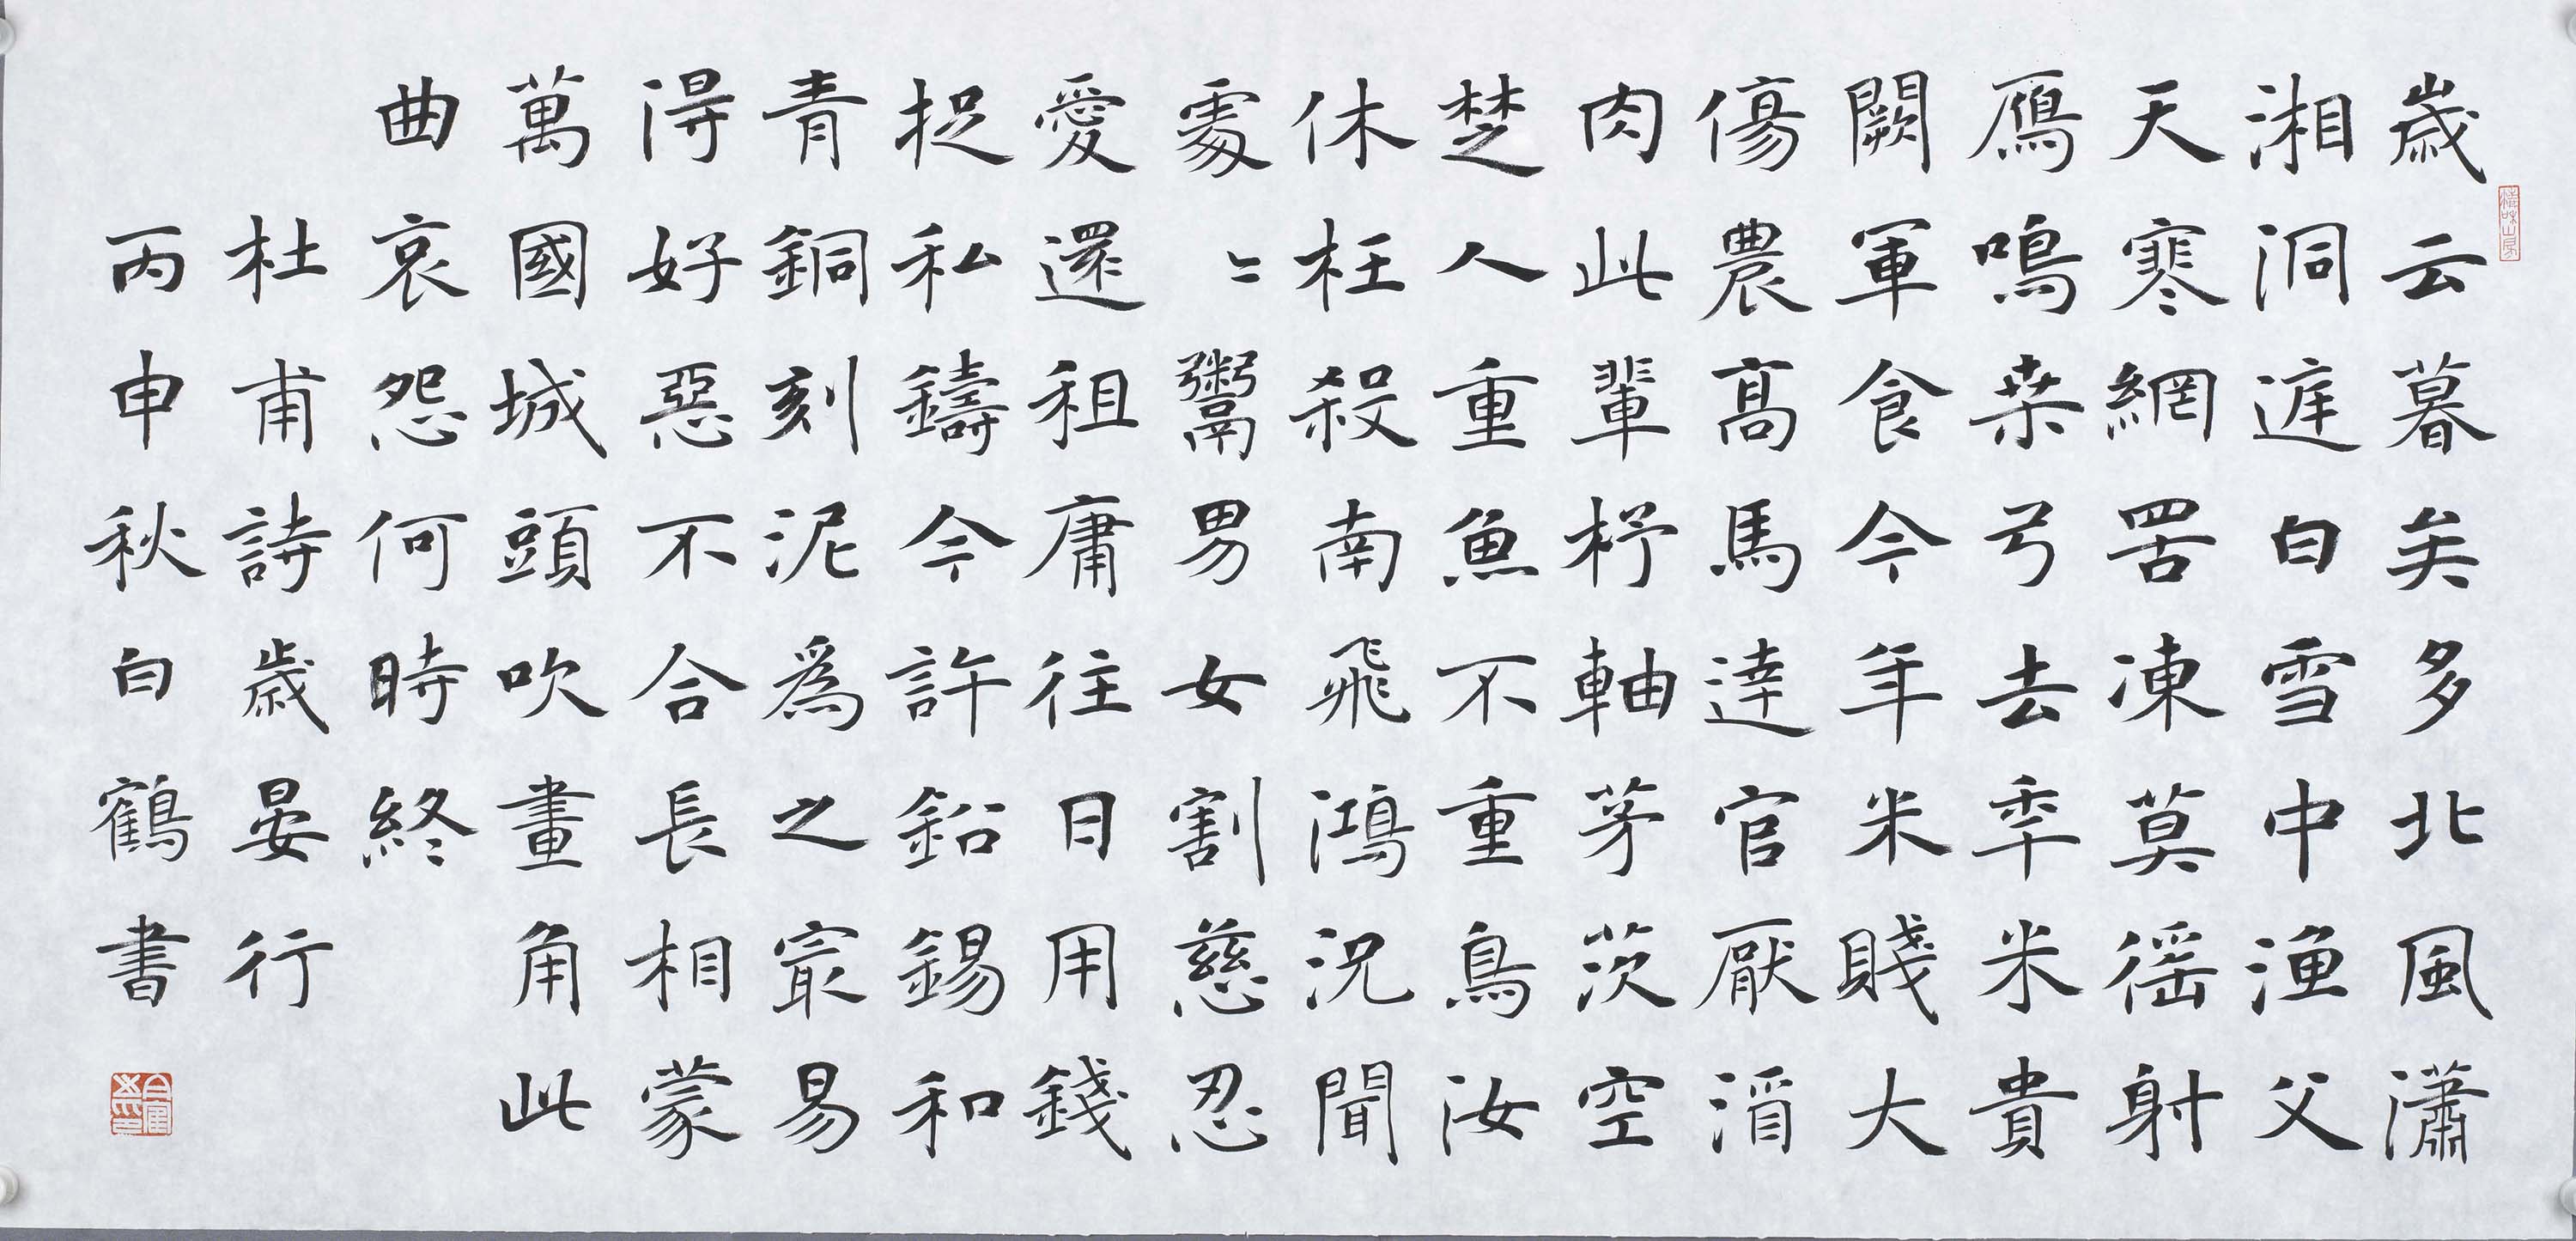 歲云暮矣多北風瀟
湘洞庭白雪中漁父
天寒網罟凍莫徭射
鴈鳴桒弓去秊米貴
闕軍食今年米賤大
傷農高馬達官厭酒
肉此輩杼軸茅茨空
楚人重魚不重鳥汝
休枉殺南飛鴻況聞
處〻鬻男女割慈忍
愛還租庸往日用錢
捉私鑄今許鉛錫和
青銅刻泥為之寂易
得好惡不合長相蒙
萬國城頭吹畫角此
曲哀怨何時終
杜甫詩歲晏行
丙申秋白鶴書